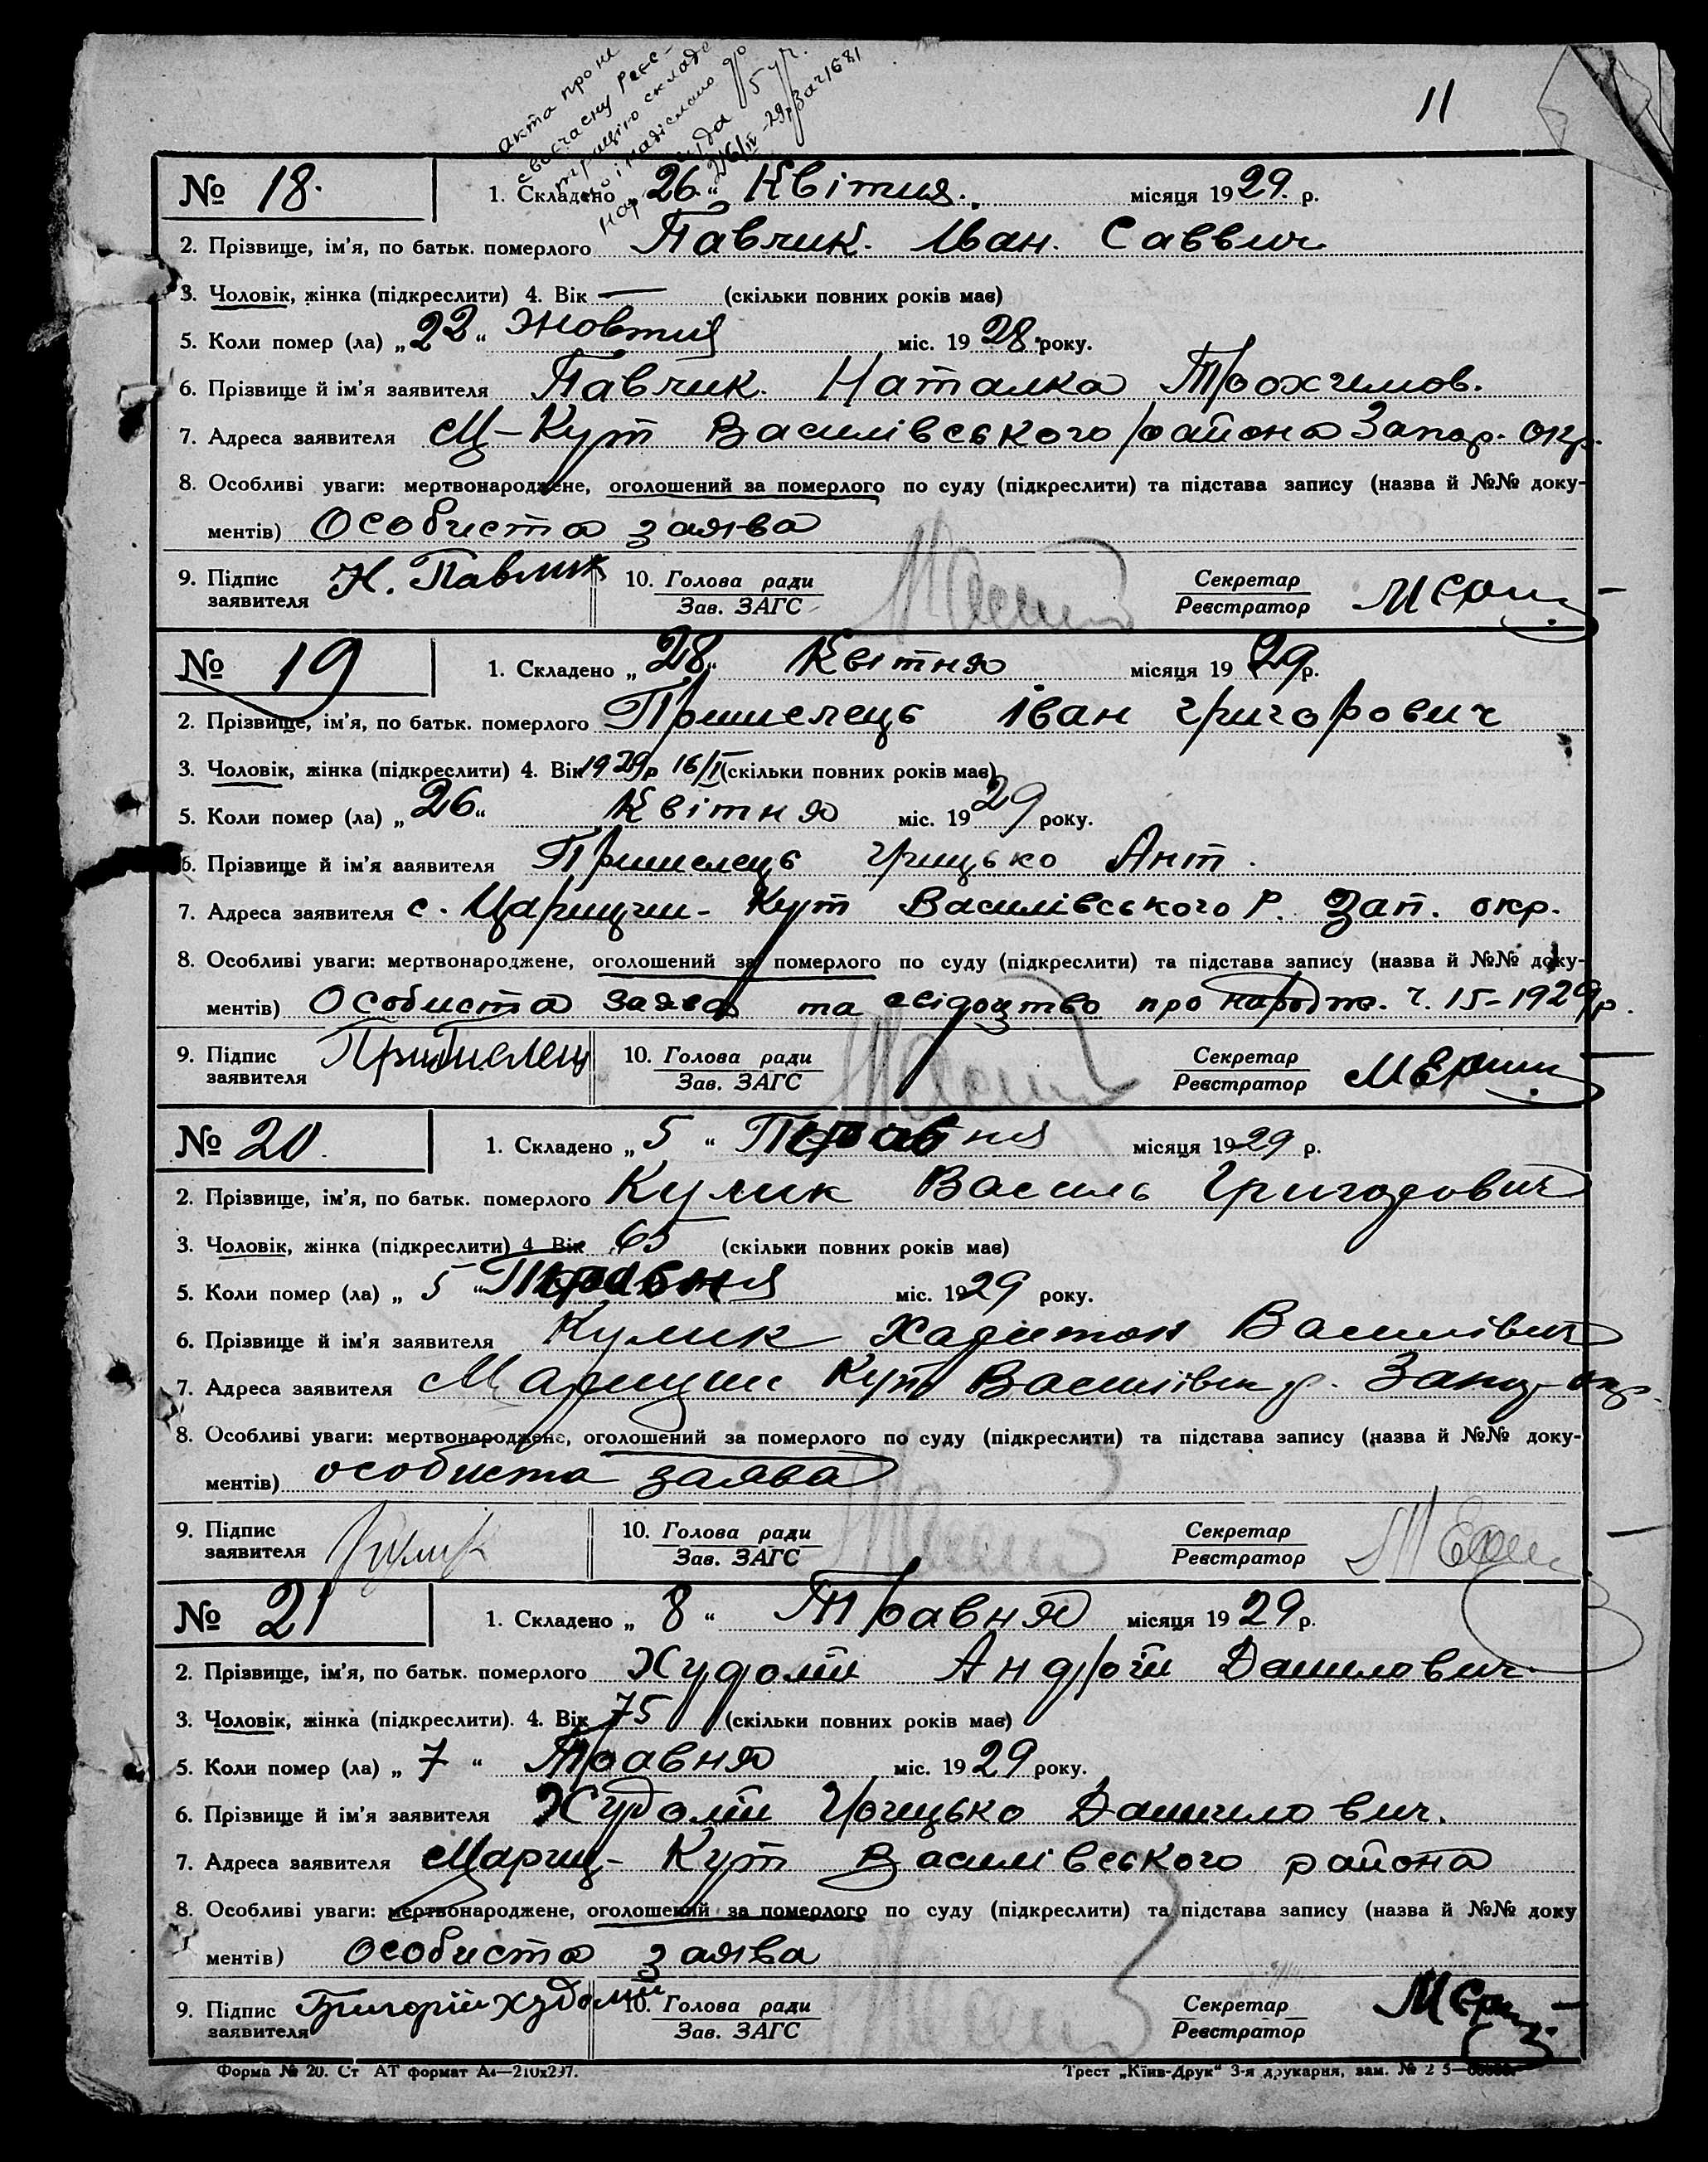 акта про не
своєчасну Реєс-
трацію складе
но і надіслано до
Нар суда 5 уч.
26/IV-29р за ч 1681
11
№ 18. 1. Складено „26“ Квітня. місяця 1929. р.
2. Прізвище, ім'я, по батьк. померлого Павлик. Іван. Саввич
3. Чоловік, жінка (підкреслити) 4. Вік — (скільки повних років має)
5. Коли помер (ла) „22“ Жовтня міс. 1928 року.
6. Прізвище й ім'я заявителя Павлик. Наталка Трохимов.
7. Адреса заявителя Ц-Кут Василівського района Запор. окр.
8. Особливі уваги: мертвонароджене, оголошений за померлого по суду (підкреслити) та підстава запису (назва й №№ доку-
ментів) Особиста заява
9. Підпис заявителя Н. Павлик 10. Голова ради Зав. ЗАГС Секретар Реєстратор
№ 19 1. Складено „28“ Квітня місяця 1929 р.
2. Прізвище, ім'я, по батьк. померлого Пришелець Іван Григорович
3. Чоловік, жінка (підкреслити) 4. Вік 1929р 16/I (скільки повних років має)
5. Коли помер (ла) „26“ Квітня міс. 1929 року.
6. Прізвище й ім'я заявителя Пришелець Грицько Ант.
7. Адреса заявителя с. Царицин-Кут Василівського Р. Зап. окр.
8. Особливі уваги: мертвонароджене, оголошений за померлого по суду (підкреслити) та підстава запису (назва й №№ доку-
ментів) Особиста заява та свідоцтво про народж. ч. 15-1929р.
9. Підпис заявителя Пришелец 10. Голова ради Зав. ЗАГС Секретар Реєстратор
№ 20. 1. Складено „5“ Травня місяця 1929 р.
2. Прізвище, ім'я, по батьк. померлого Кулик Василь Григорович
3. Чоловік, жінка (підкреслити) 4. Вік 65 (скільки повних років має)
5. Коли помер (ла) „5“ Травня міс. 1929 року.
6. Прізвище й ім'я заявителя Кулик Харитон Василівич
7. Адреса заявителя Царицин Кут Василівськ р. Запор окр.
8. Особливі уваги: мертвонароджене, оголошений за померлого по суду (підкреслити) та підстава запису (назва й №№ доку-
ментів) особиста заява
9. Підпис заявителя Кулик 10. Голова ради Зав. ЗАГС Секретар Реєстратор
№ 21 1. Складено „8“ Травня місяця 1929 р.
2. Прізвище, ім'я, по батьк. померлого Худолій Андрій Данилович.
3. Чоловік, жінка (підкреслити). 4. Вік 75 (скільки повних років має)
5. Коли помер (ла) „7“ Травня міс. 1929 року.
6. Прізвище й ім'я заявителя Худолій Грицько Данилович.
7. Адреса заявителя Цариц-Кут Василівського района
8. Особливі уваги: мертвонароджене, оголошений за померлого по суду (підкреслити) та підстава запису (назва й №№ доку
ментів) Особиста заява
9. Підпис заявителя Григорій Худолій 10. Голова ради Зав. ЗАГС Секретар Реєстратор
Форма № 20. Ст АТ формат А4—210х297. Трест „Київ-Друк“ 3-я друкарня, зам. №